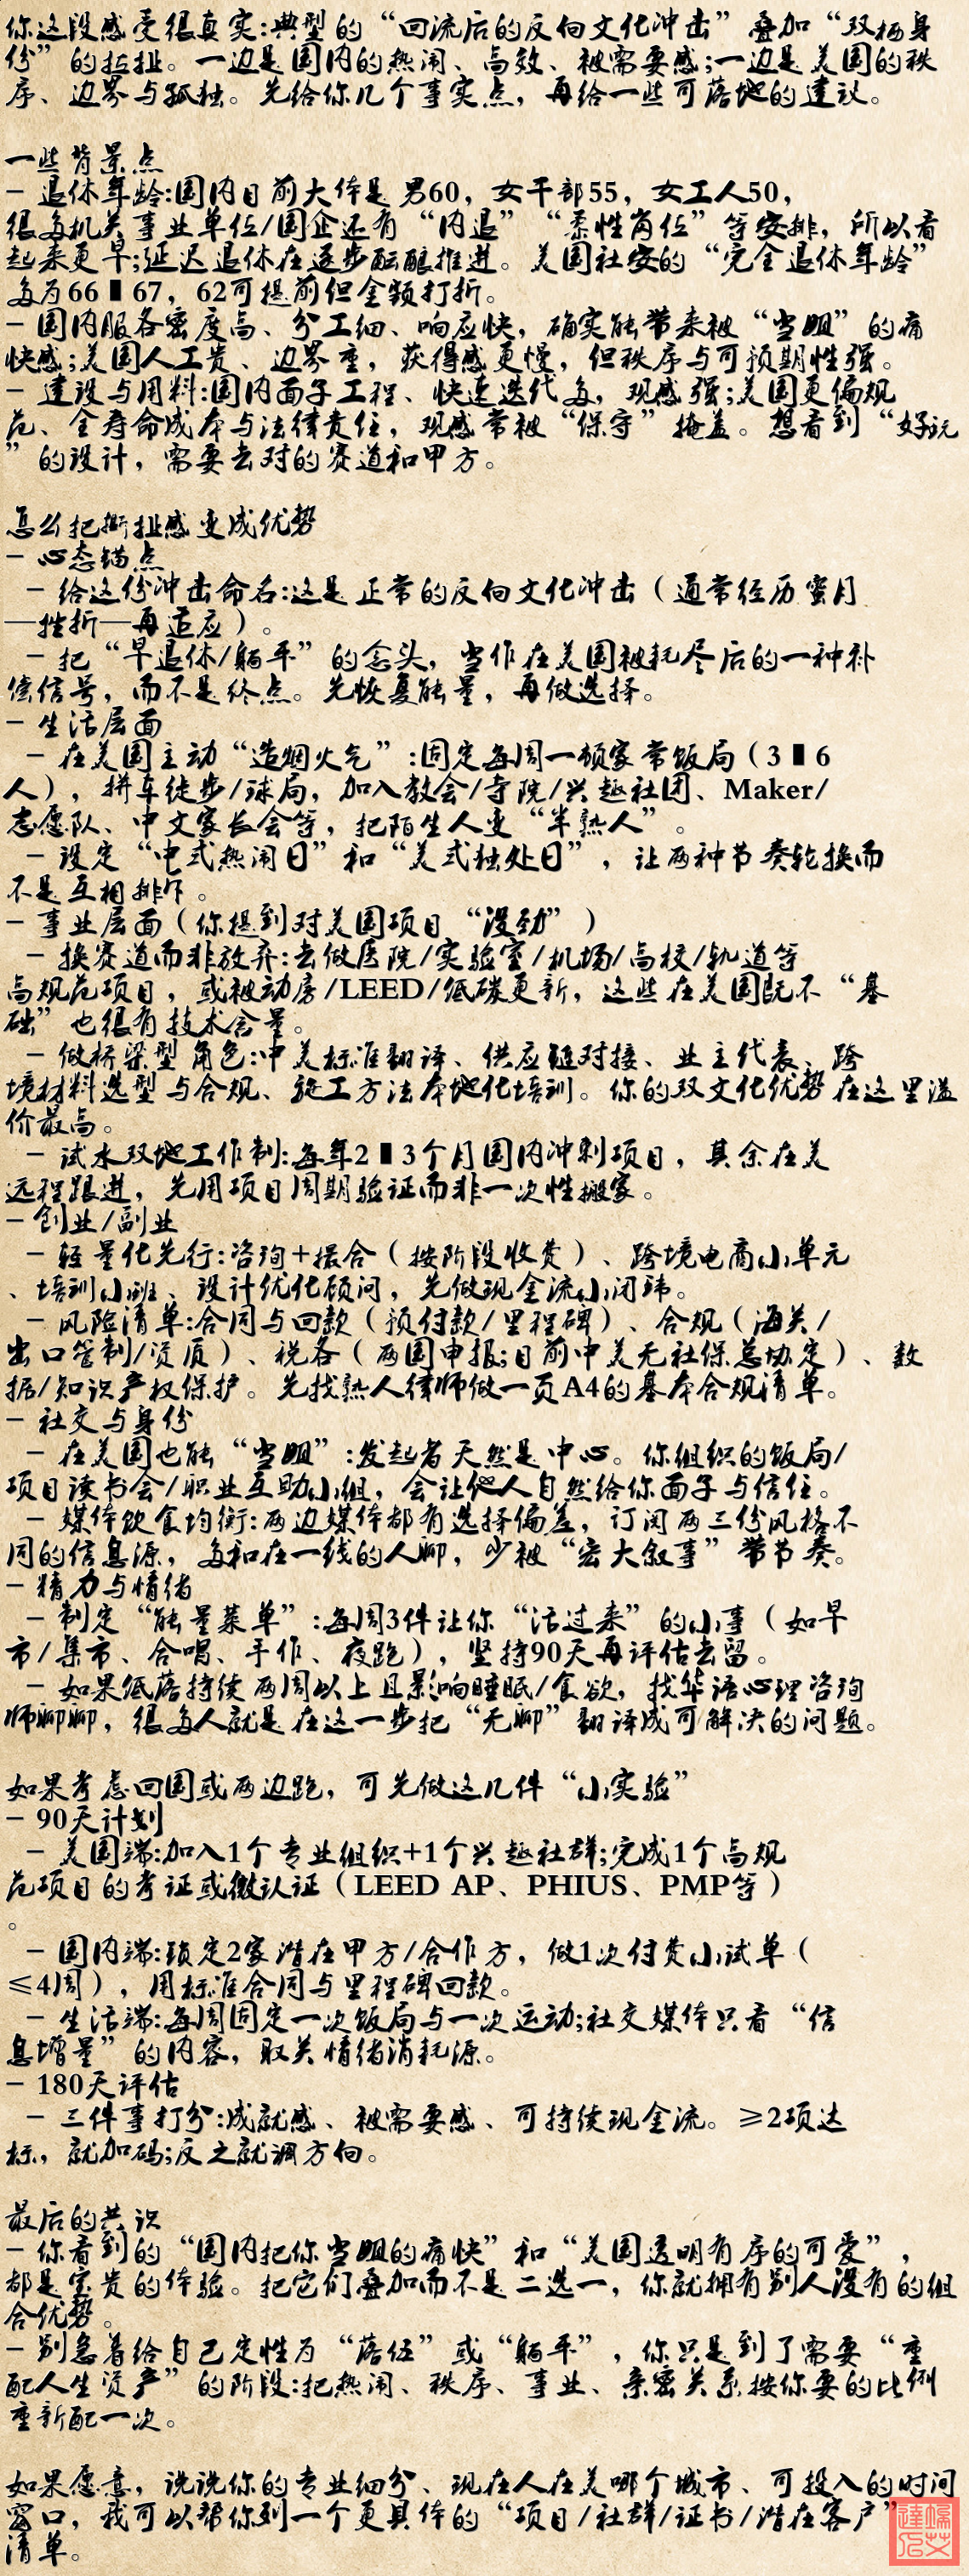 你这段感受很真实:典型的“回流后的反向文化冲击”叠加“双栖身
份”的拉扯。一边是国内的热闹、高效、被需要感;一边是美国的秩
序、边界与孤独。先给你几个事实点，再给一些可落地的建议。
一些背景点
- 退休年龄:国内目前大体是男60，女干部55，女工人50，
很多机关事业单位/国企还有“内退”“柔性岗位”等安排，所以看
起来更早;延迟退休在逐步酝酿推进。美国社安的“完全退休年龄”
多为66▮67，62可提前但金额打折。
- 国内服务密度高、分工细、响应快，确实能带来被“当姐”的痛
快感;美国人工贵、边界重，获得感更慢，但秩序与可预期性强。
- 建设与用料:国内面子工程、快速迭代多，观感强;美国更偏规
范、全寿命成本与法律责任，观感常被“保守”掩盖。想看到“好玩
”的设计，需要去对的赛道和甲方。
怎么把撕扯感变成优势
- 心态锚点
- 给这份冲击命名:这是正常的反向文化冲击（通常经历蜜月
—挫折—再适应）。
- 把“早退休/躺平”的念头，当作在美国被耗尽后的一种补
偿信号，而不是终点。先恢复能量，再做选择。
- 生活层面
- 在美国主动“造烟火气”:固定每周一顿家常饭局（3▮6
人），拼车徒步/球局，加入教会/寺院/兴趣社团、Maker/
志愿队、中文家长会等，把陌生人变“半熟人”。
- 设定“中式热闹日”和“美式独处日”，让两种节奏轮换而
不是互相排斥。
- 事业层面（你提到对美国项目“没劲”）
- 换赛道而非放弃:去做医院/实验室/机场/高校/轨道等
高规范项目，或被动房/LEED/低碳更新，这些在美国既不“基
础”也很有技术含量。
- 做桥梁型角色:中美标准翻译、供应链对接、业主代表、跨
境材料选型与合规、施工方法本地化培训。你的双文化优势在这里溢
价最高。
- 试水双地工作制:每年2▮3个月国内冲刺项目，其余在美
远程跟进，先用项目周期验证而非一次性搬家。
- 创业/副业
- 轻量化先行:咨询+撮合（按阶段收费）、跨境电商小单元
、培训小班、设计优化顾问，先做现金流小闭环。
- 风险清单:合同与回款（预付款/里程碑）、合规（海关/
出口管制/资质）、税务（两国申报;目前中美无社保总协定）、数
据/知识产权保护。先找熟人律师做一页A4的基本合规清单。
- 社交与身份
- 在美国也能“当姐”:发起者天然是中心。你组织的饭局/
项目读书会/职业互助小组，会让他人自然给你面子与信任。
- 媒体饮食均衡:两边媒体都有选择偏差，订阅两三份风格不
同的信息源，多和在一线的人聊，少被“宏大叙事”带节奏。
- 精力与情绪
- 制定“能量菜单”:每周3件让你“活过来”的小事（如早
市/集市、合唱、手作、夜跑），坚持90天再评估去留。
- 如果低落持续两周以上且影响睡眠/食欲，找华语心理咨询
师聊聊，很多人就是在这一步把“无聊”翻译成可解决的问题。
如果考虑回国或两边跑，可先做这几件“小实验”
- 90天计划
- 美国端:加入1个专业组织+1个兴趣社群;完成1个高规
范项目的考证或微认证（LEED AP、PHIUS、PMP等）
。
- 国内端:锁定2家潜在甲方/合作方，做1次付费小试单（
≤4周），用标准合同与里程碑回款。
- 生活端:每周固定一次饭局与一次运动;社交媒体只看“信
息增量”的内容，取关情绪消耗源。
- 180天评估
- 三件事打分:成就感、被需要感、可持续现金流。≥2项达
标，就加码;反之就调方向。
最后的共识
- 你看到的“国内把你当姐的痛快”和“美国透明有序的可爱”，
都是宝贵的体验。把它们叠加而不是二选一，你就拥有别人没有的组
合优势。
- 别急着给自己定性为“落伍”或“躺平”，你只是到了需要“重
配人生资产”的阶段:把热闹、秩序、事业、亲密关系按你要的比例
重新配一次。
如果愿意，说说你的专业细分、现在人在美哪个城市、可投入的时间
窗口，我可以帮你列一个更具体的“项目/社群/证书/潜在客户”
清单。